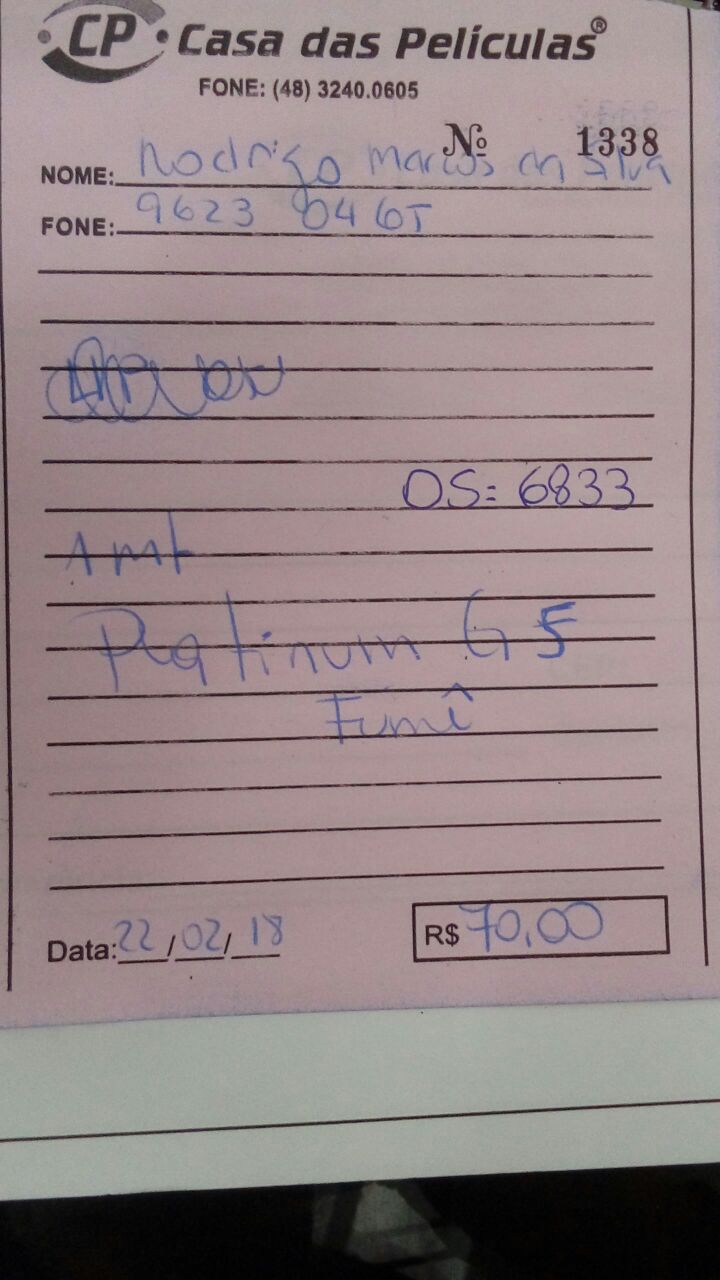 CP Casa das Películas®
FONE: (48) 3240.0605
Nº 1338
NOME: Rodrigo Marcos da Silva
FONE: 9623
OS: 6833
1 mt
Platinum G5
Fumê
Data: 22/02/18
R$ 70,00